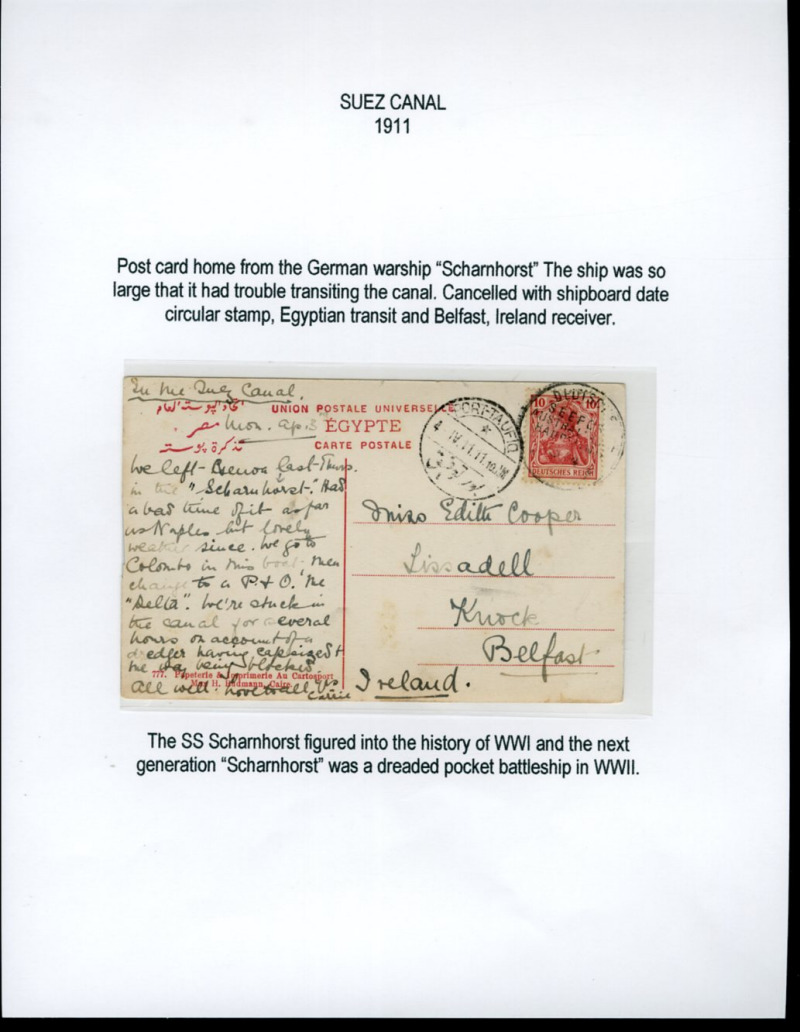 SUEZ CANAL
1911
Post card home from the German warship “Scharnhorst” The ship was so
large that it had trouble transiting the canal. Cancelled with shipboard date
circular stamp, Egyptian transit and Belfast, Ireland receiver.
In the Suez Canal.
UNION POSTALE UNIVERSELLE
Mon. Ap. 3
مصر
ÉGYPTE
تذكرة بوستة
CARTE POSTALE
PORT-TAUFIQ
10 10
DEUTSCHES REICH
We left Genoa last Thurs.
in the "Scharnhorst". Had
a bad time of it as far
as Naples but lovely
weather since. We go to
Colombo in this boat, then
change to a P. & O. the
"Delta". We're stuck in
the canal for several
hours on account of a
dredger having capsized &
the way being blocked.
All well. love to all, yrs
Carrie
777. Papeterie & Imprimerie Au Cartosport
Max H. Rudmann, Caire.
Miss Edith Cooper
Lissadell
Knock
Belfast
Ireland.
The SS Scharnhorst figured into the history of WWI and the next
generation “Scharnhorst” was a dreaded pocket battleship in WWII.